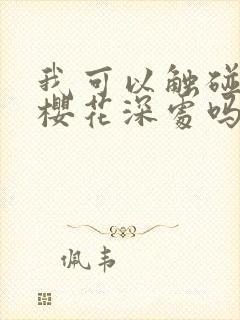 我可以触碰
樱花深处吗
佩韦